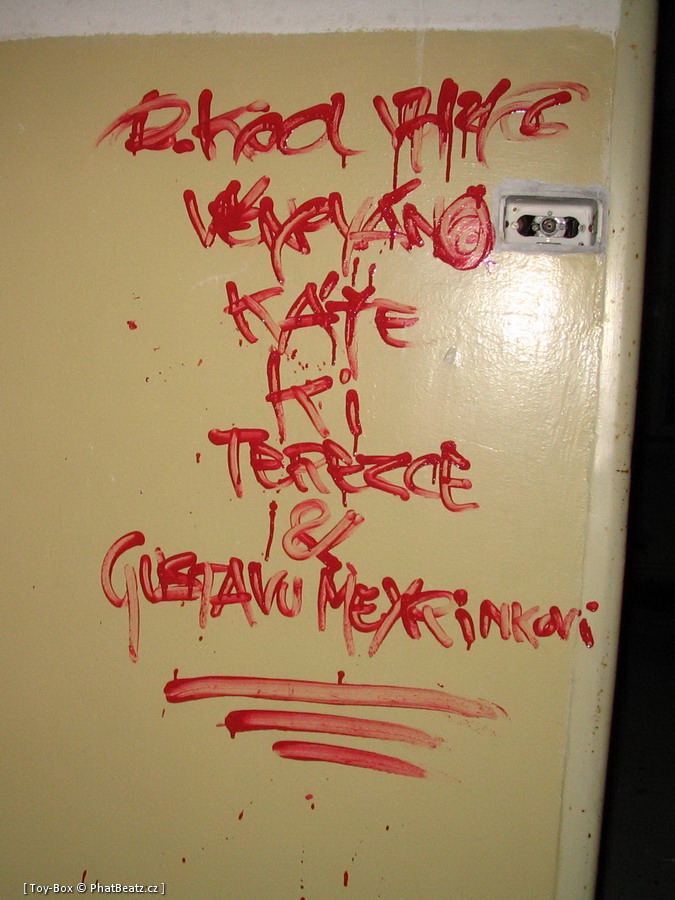 VĚNOVÁNO
KÁTE
KI
TEREZCE
&
GUSTAVU MEYRINKOVI
[ Toy-Box © PhatBeatz.cz ]